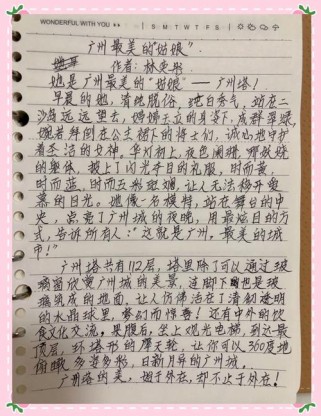 WONDERFUL WITH YOU
S M T W T F S
广州最美的"姑娘"
作者:林奕彤
她是广州最美的"姑娘"——广州塔!
早晨的她,清纯脱俗,纯白秀气,站在二
沙岛远远望去,婷婷玉立的身姿下,成群翠绿,
宛若拜倒在公主裙下的将士们,诚心地守护
着圣洁的女神。华灯初上,夜色阑珊,娜放晚
的身体,披上了闪光夺目的礼服,时而黄,
时而蓝,时而五彩斑斓,让人无法移开爱
慕的目光。她像一名模特,站在舞台的中
央,点亮了广州城的夜晚,用最炫目的方
式,告诉所有人:"这就是广州,最美的城
市!"
广州塔共有112层,塔里除了可以通过玻
璃窗欣赏广州城的美景,连脚下踩也是玻
璃筑成的地面,让人仿佛活在了清彻透明
的水晶球里,梦幻而惊喜!还有中外的饮
食文化交流,果腹后,坐上观光电梯,到达最
顶层,环塔形的摩天轮,让你可以360度地
俯瞰多姿多彩,日新月异的广州城。
广州塔的美,迥于外在,却不止于外在!